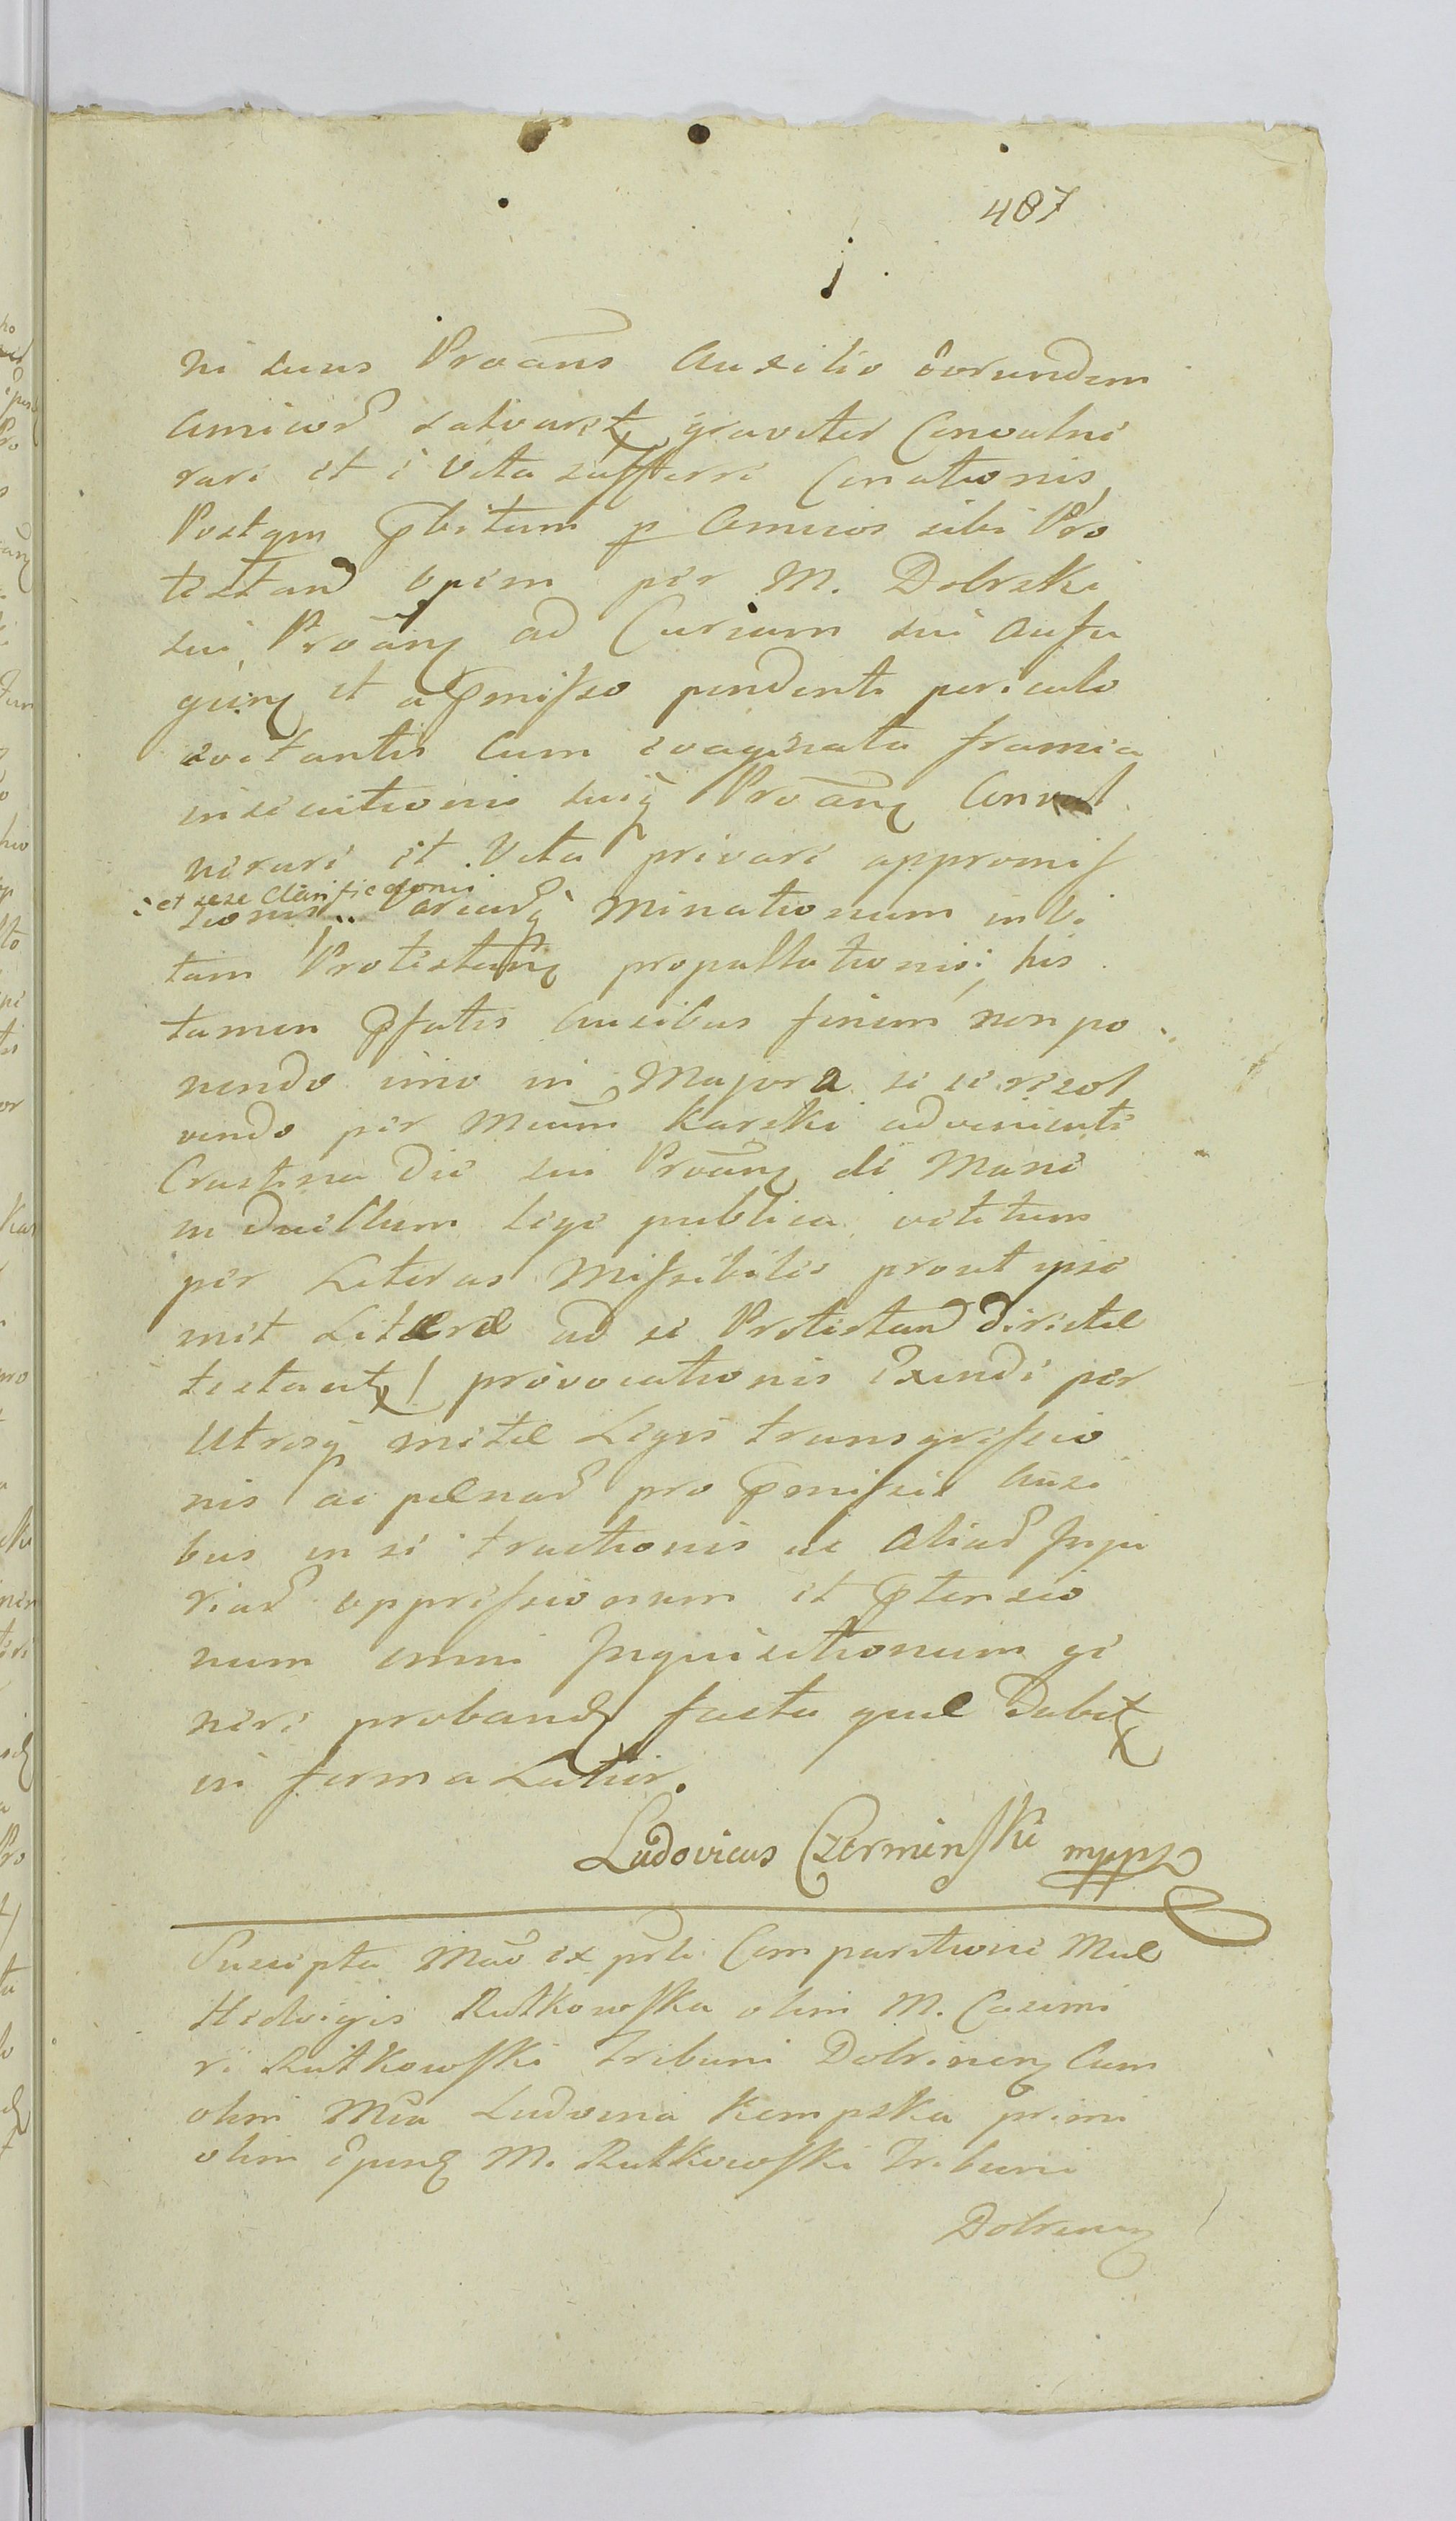 487
ni suus Proãns Auxilio eorundem
Amicor salvaret graviter Convulne
rari et è Vita sufferri Conationis
Postqm p̃bitum p Amicos sibi Pro
testand opem per M. Dobrski
sui Proãn ad Curiam sui aufu
gien et a p̃misso pendenti periculo
evitantis Cum evaginata framea
insecutionis suiq Proãn Convul
nerari et Vita privari appromis
et sese Clarificationis
sionis Variarq Minationum in Vi
tam Protestan propallationis his
tamen p̃fatis Ausibus finem non po
nendo imo in Majora se se resol
vendo per Mcum Karski advenienti
Crastina die sui Proãn de Mane
in Duellum lege publica vetitum
per Literas Missibiles prout ipse
met Literæ ad se Protestand directæ
testantr provocationis Exinde per
Utrosq metæ Legis transgressio
nis ac pænar pro p̃missis Ausi
bus in se tractionis ac Aliar Inju
riar oppressionum et p̃tensio
num omni Inquisitionum ge
nere proband facta quæ Dabitr
in forma Latior.
Ludovicus Czerminski mppr
Suscipta Mão ex prti Comparitione Mcæ
Hedvigis Rutkowska olim M. Casimi
ri Rutkowski Tribuni Dobrinen Cum
olim Mca Ludovica Kempska primi
olim Ejusd M. Rutkowski Tribuni
Dobrinen